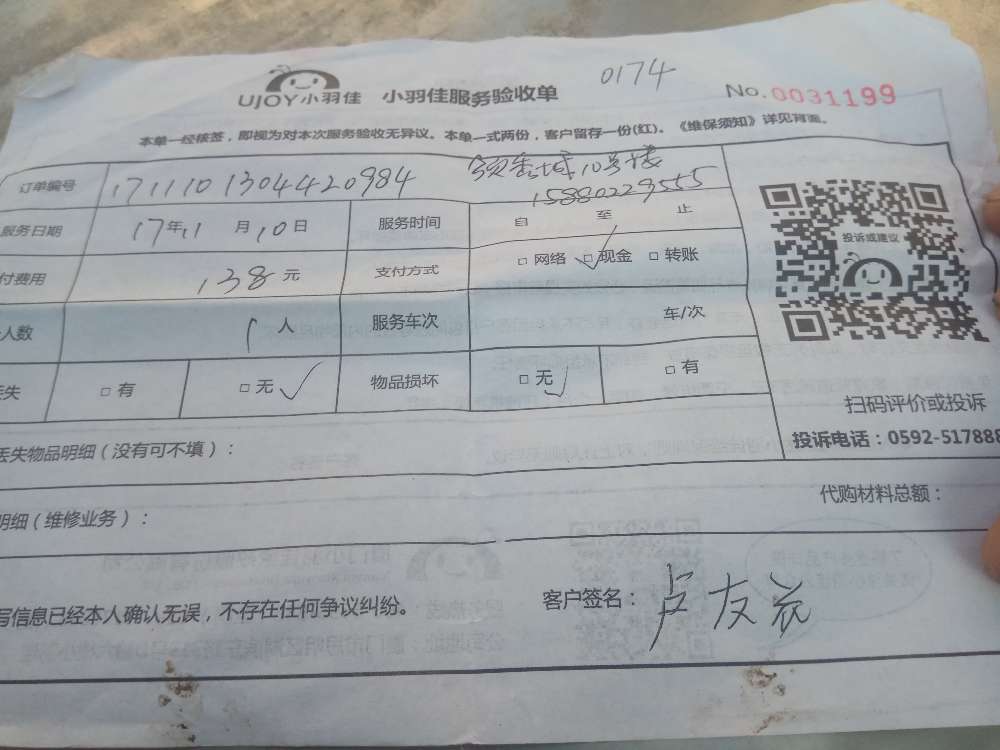 UJOY小羽佳 小羽佳服务验收单 0174 No.0031199
本单一经核签，即视为对本次服务验收无异议。本单一式两份，客户留存一份(红)。《维保须知》详见背面。
订单编号 1711101304420984 领秀城10号楼
15880229555
服务日期 17年11月10日 服务时间 自 至 止
付费用 138元 支付方式 □网络 □现金 □转账
人数 1人 服务车次 车/次
丢失 □有 □无 物品损坏 □无 □有
投诉或建议
扫码评价或投诉
投诉电话：0592-517888
丢失物品明细（没有可不填）：
代购材料总额：
明细（维修业务）：
写信息已经本人确认无误，不存在任何争议纠纷。 客户签名：卢友